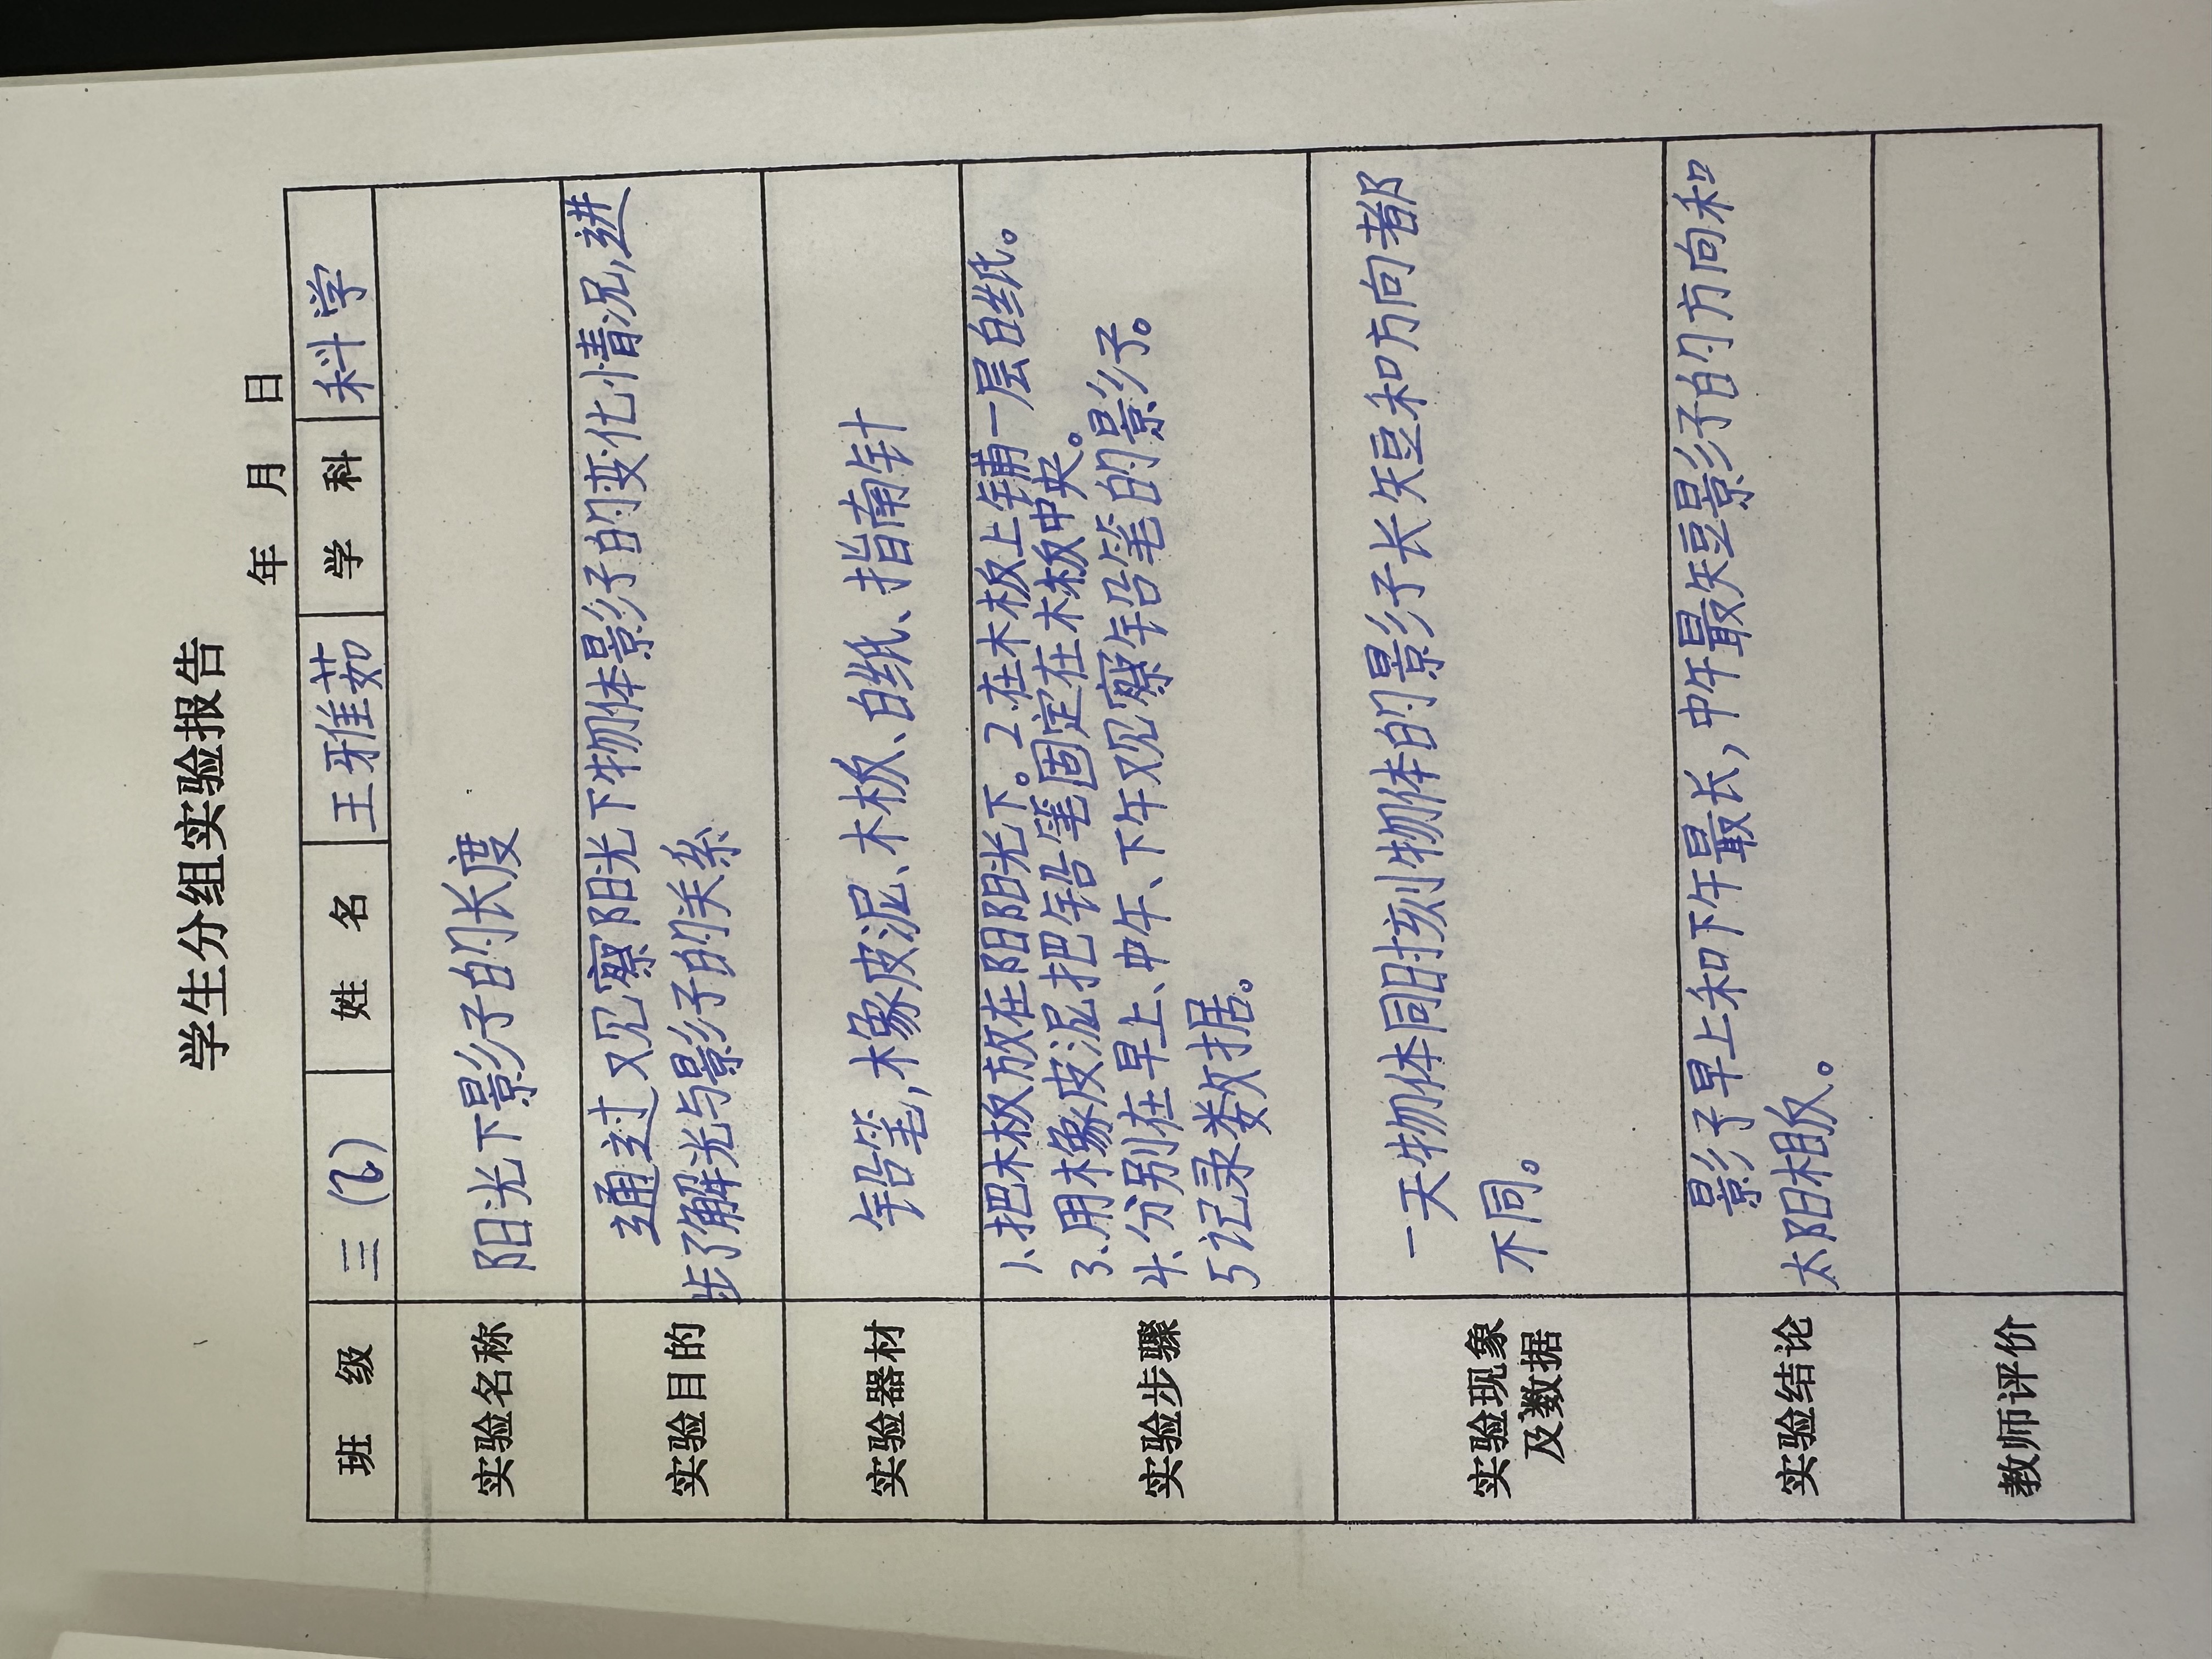 学生分组实验报告
年 月 日
班 级 三(6) 姓 名 王雅茹 学 科 科学
实验名称 阳光下影子的长度
实验目的 通过观察阳光下物体影子的变化情况,进
步了解光与影子的关系
实验器材 铅笔,橡皮泥、木板、白纸、指南针
实验步骤 1.把木板放在阳阳光下。2在木板上铺一层白纸。
3.用橡皮泥把铅笔固定在木板中央。
4.分别在早上、中午、下午观察铅笔的影子。
5记录数据。
实验现象
及数据
一天物体同时刻物体的影子长短和方向都
不同。
实验结论 影子早上和下午最长,中午最短影子的方向和
太阳相反。
教师评价